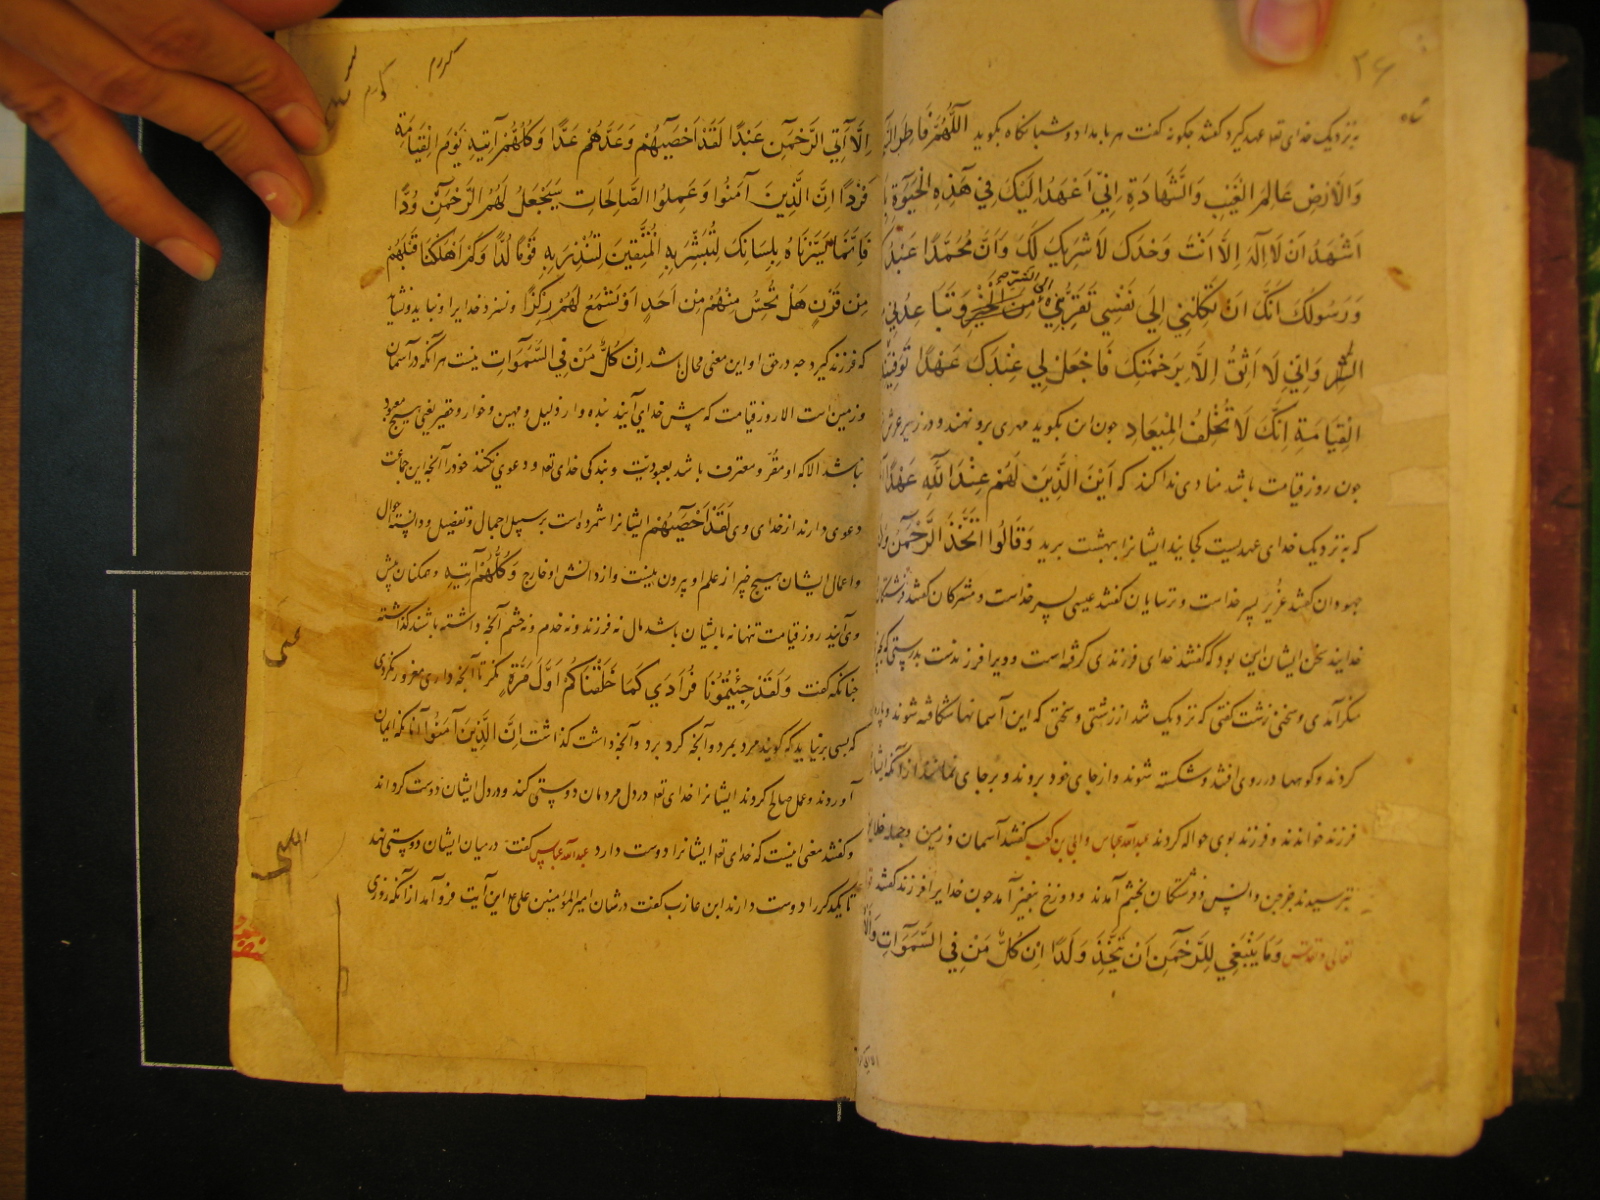 ۳۶
به نزدیک خدای تعه عهد گیرد گفتند چگونه گفت هر بامداد و شبانگاه بگوید اللَّهُمَّ فَاطِرَ
وَالْاَرْضِ عَالِمَ الْغَيْبِ وَالشَّهَادَةِ اِنِّي اَعْهَدُ اِلَيْكَ فِي هَذِهِ الْحَيٰوةِ
اَشْهَدُ اَنْ لَا اِلَهَ اِلَّا اَنْتَ وَحْدَكَ لَا شَرِيكَ لَكَ وَاَنَّ مُحَمَّدًا عَبْدُكَ
وَرَسُولُكَ اِنَّكَ اَنْ تَكِلْنِي اِلَي نَفْسِي تُقَرِّبْنِي مِنَ الْخَيْرِ وَتُبَاعِدْنِي
الشر وَاِنِّي لَا اَثِقُ اِلَّا بِرَحْمَتِكَ فَاجْعَلْ لِي عِنْدَكَ عَهْدًا
الْقِيَامَةِ اِنَّكَ لَا تُخْلِفُ الْمِيعَادِ چون این بگوید مهری برو نهند و در زیر عرش
چون روز قیامت باشد منادی ندا کند که اَيْنَ الَّذِينَ لَهُمْ عِنْدَ اللهِ عَهْدًا
که به نزدیک خدای عهدیست کجایند ایشانرا ببهشت برید وَقَالُوا اتَّخَذَ الرَّحْمٰنُ
جهودان گفتند عزیر پسر خداست و ترسایان گفتند عیسی پسر خداست و مشرکان گفتند
خدایند سخن ایشان این بود که گفتند خدای فرزندی گرفته است و ویرا فرزندست بدرستی که
منکر آمدی و سخنی زشت گفتی که نزدیک شد از زشتی و سختی که این آسمانها شکافته شوند
گردند و کوهها در روی افتد و شکسته شوند و از جای خود بروند و بر جای نمانند از آنکه
فرزند خواندند و فرزند بوی حواله کردند عبدالله عباس و ابی بن کعب گفتند آسمان و زمین و جمله
بترسیدند جز جن و انس و فرشتگان بخشم آمدند و دوزخ آمد چون خدایرا فرزند گفتند
تعالی و تقدس وَمَا يَنْبَغِي لِلرَّحْمٰنِ اَنْ يَتَّخِذَ وَلَدًا اِنْ كُلُّ مَنْ فِي السَّمٰوَاتِ
اِلَّا اٰتِي الرَّحْمٰنِ عَبْدًا لَقَدْ اَحْصٰيهُمْ وَعَدَّهُمْ عَدًّا وَكُلُّهُمْ اٰتِيهِ يَوْمَ الْقِيَامَةِ
فَرْدًا اِنَّ الَّذِينَ آمَنُوا وَعَمِلُوا الصَّالِحَاتِ سَيَجْعَلُ لَهُمُ الرَّحْمٰنُ وُدًّا
فَاِنَّمَا يَسَّرْنَاهُ بِلِسَانِكَ لِتُبَشِّرَ بِهِ الْمُتَّقِينَ لِتُنْذِرَ بِهِ قَوْمًا لُدًّا وَكَمْ اَهْلَكْنَا قَبْلَهُمْ
مِنْ قَرْنٍ هَلْ تُحِسُّ مِنْهُمْ مِنْ اَحَدٍ اَوْ تَسْمَعُ لَهُمْ رِكْزًا و نسزد خدایرا و نباید و نشاید
که فرزند گیرد چه در حق او این معنی محال باشد اِنْ كُلُّ مَنْ فِي السَّمٰوَاتِ نیست هر آنکه در آسمان
و زمین است الا روز قیامت که پیش خدای آیند بنده وار ذلیل و مهین و خوار و حقیر یعنی هیچ معبود
نباشد الا که او مقر و معترف باشد بعبودیت و بندگی خدای تعه و دعوی نکند خود را آنچه این جماعت
دعوی دارند از خدای وی لَقَدْ اَحْصٰيهُمْ ایشانرا شمرده است بر سبیل اجمال و تفصیل و دانسته احوال
و اعمال ایشان هیچ چیز از علم او بیرون نیست و از دانش او خارج وَكُلُّهُمْ اٰتِيهِ و همگنان پیش
وی آیند روز قیامت تنها نه با یشان باشد مال نه فرزند و نه خدم و نه خشم آنچه داشته باشند گذاشته
چنانکه گفت وَلَقَدْ جِئْتُمُونَا فُرَادَي كَمَا خَلَقْنَاكُمْ اَوَّلَ مَرَّةٍ نگر تا آنچه داری مغرور نگردی
که بسی برنیاید که گویند مرد بمرد و آنچه کرد برد و آنچه داشت گذاشت اِنَّ الَّذِينَ آمَنُوا آنانکه ایمان
آوردند و عمل صالح کردند ایشانرا خدای تعه در دل مردمان دوستی کند و در دل ایشان دوست گرداند
و گفتند معنی اینست که خدای تعه ایشانرا دوست دارد عبدالله عباس گفت در میان ایشان دوستی نهد
تا یکدیگر را دوست دارند ابن عازب گفت در شان امیرالمؤمنین علی ع این آیت فرو آمد از آنکه روزی